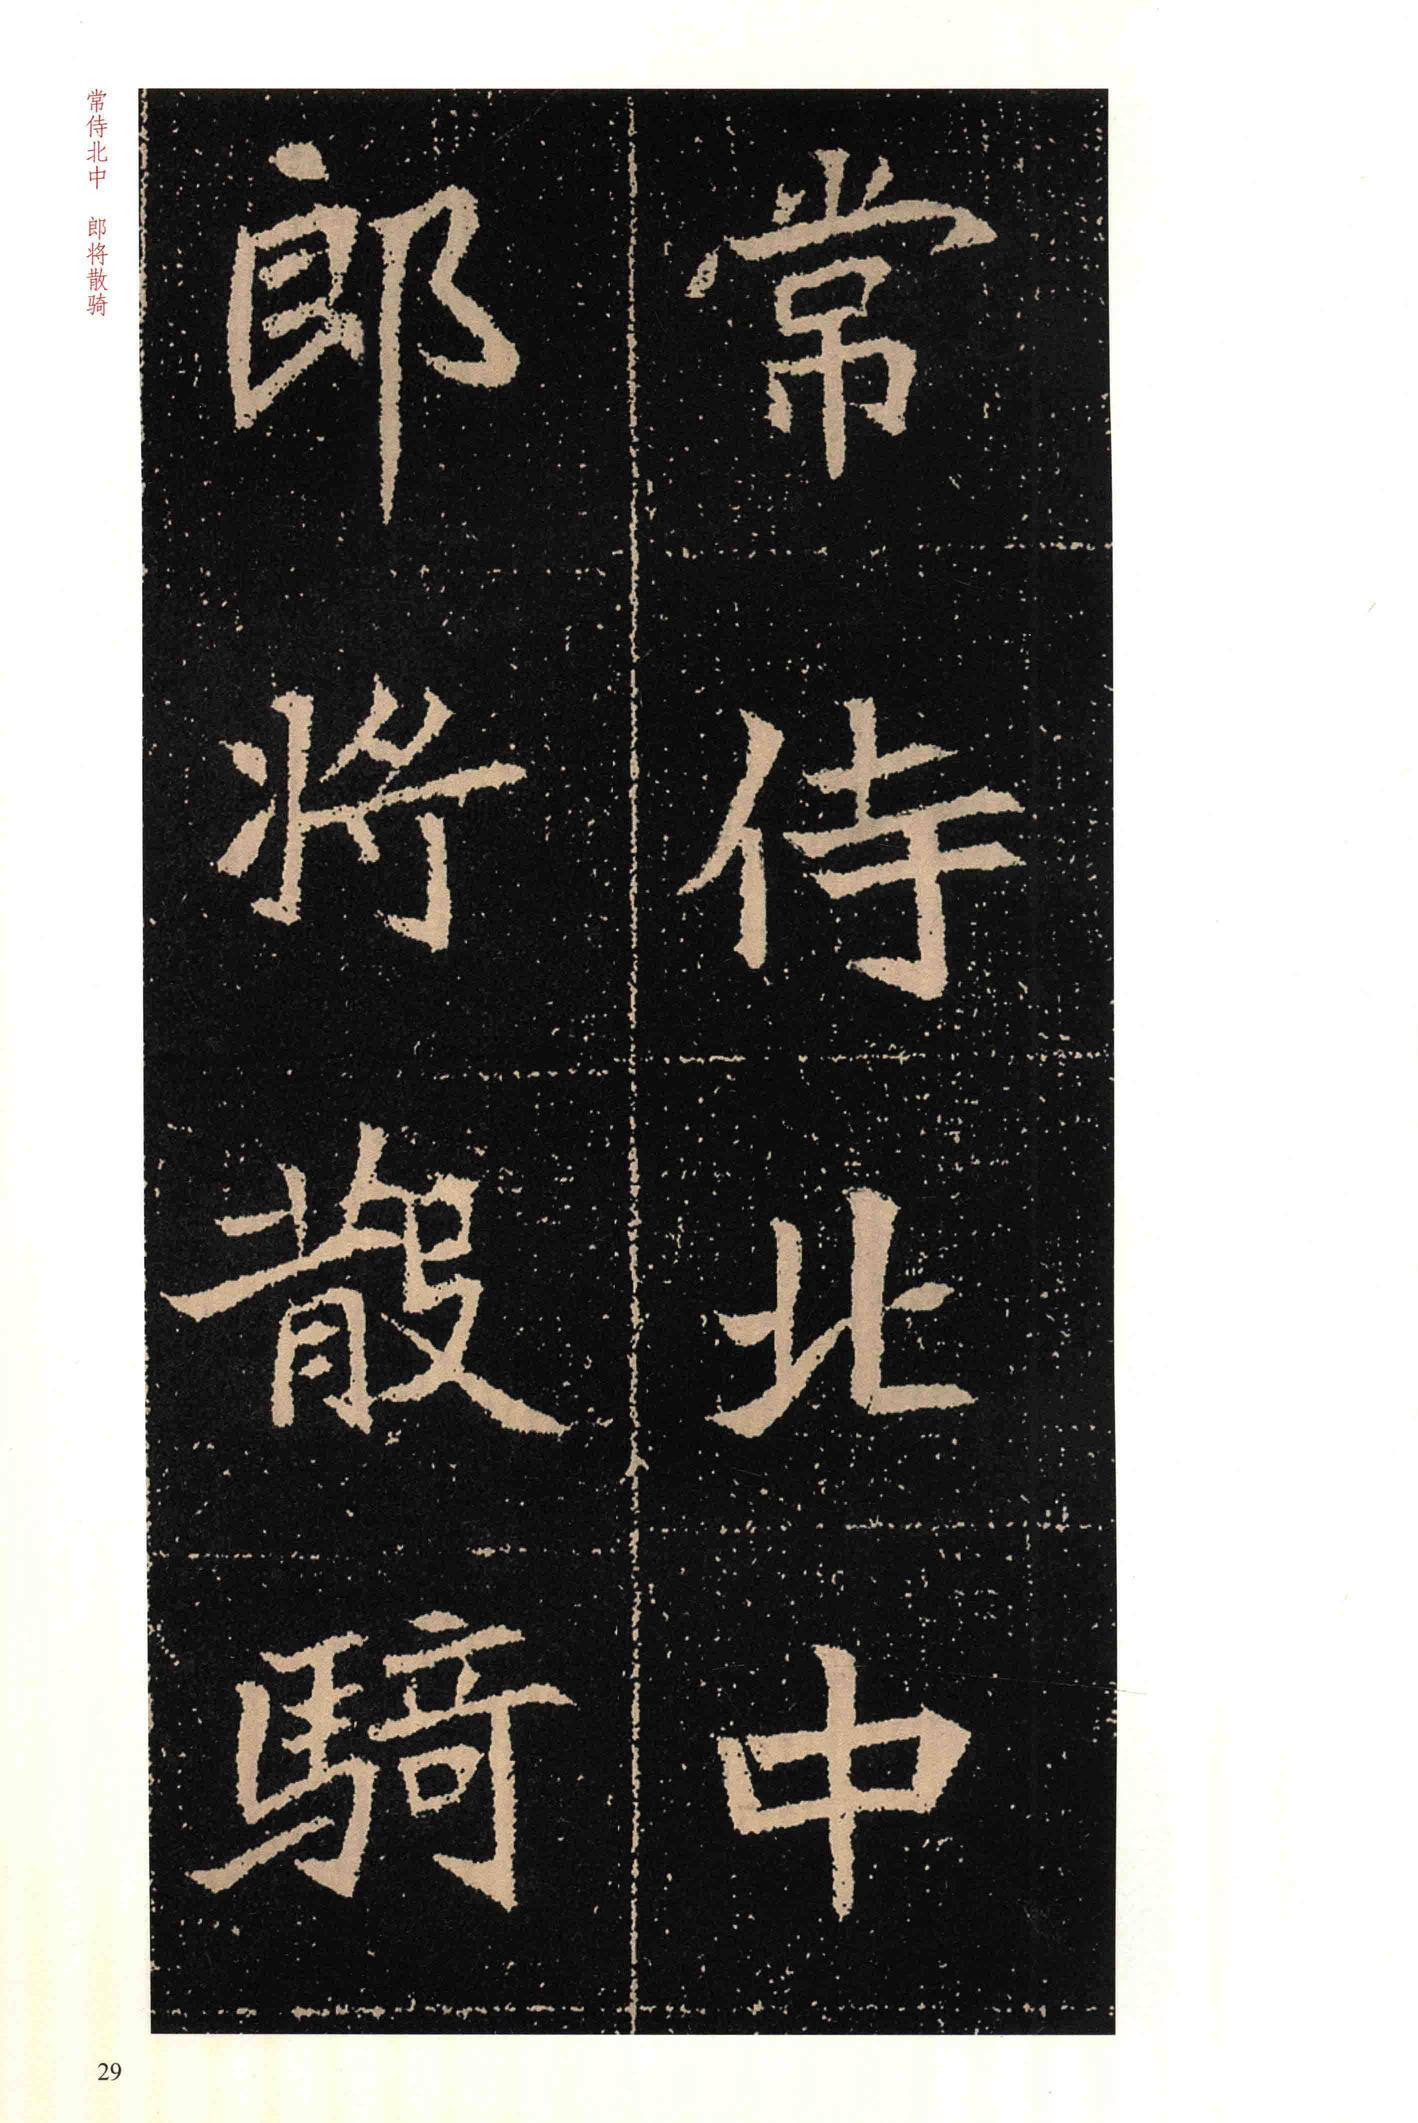 常侍北中
郎将散騎
常侍北中　郎将散骑
29